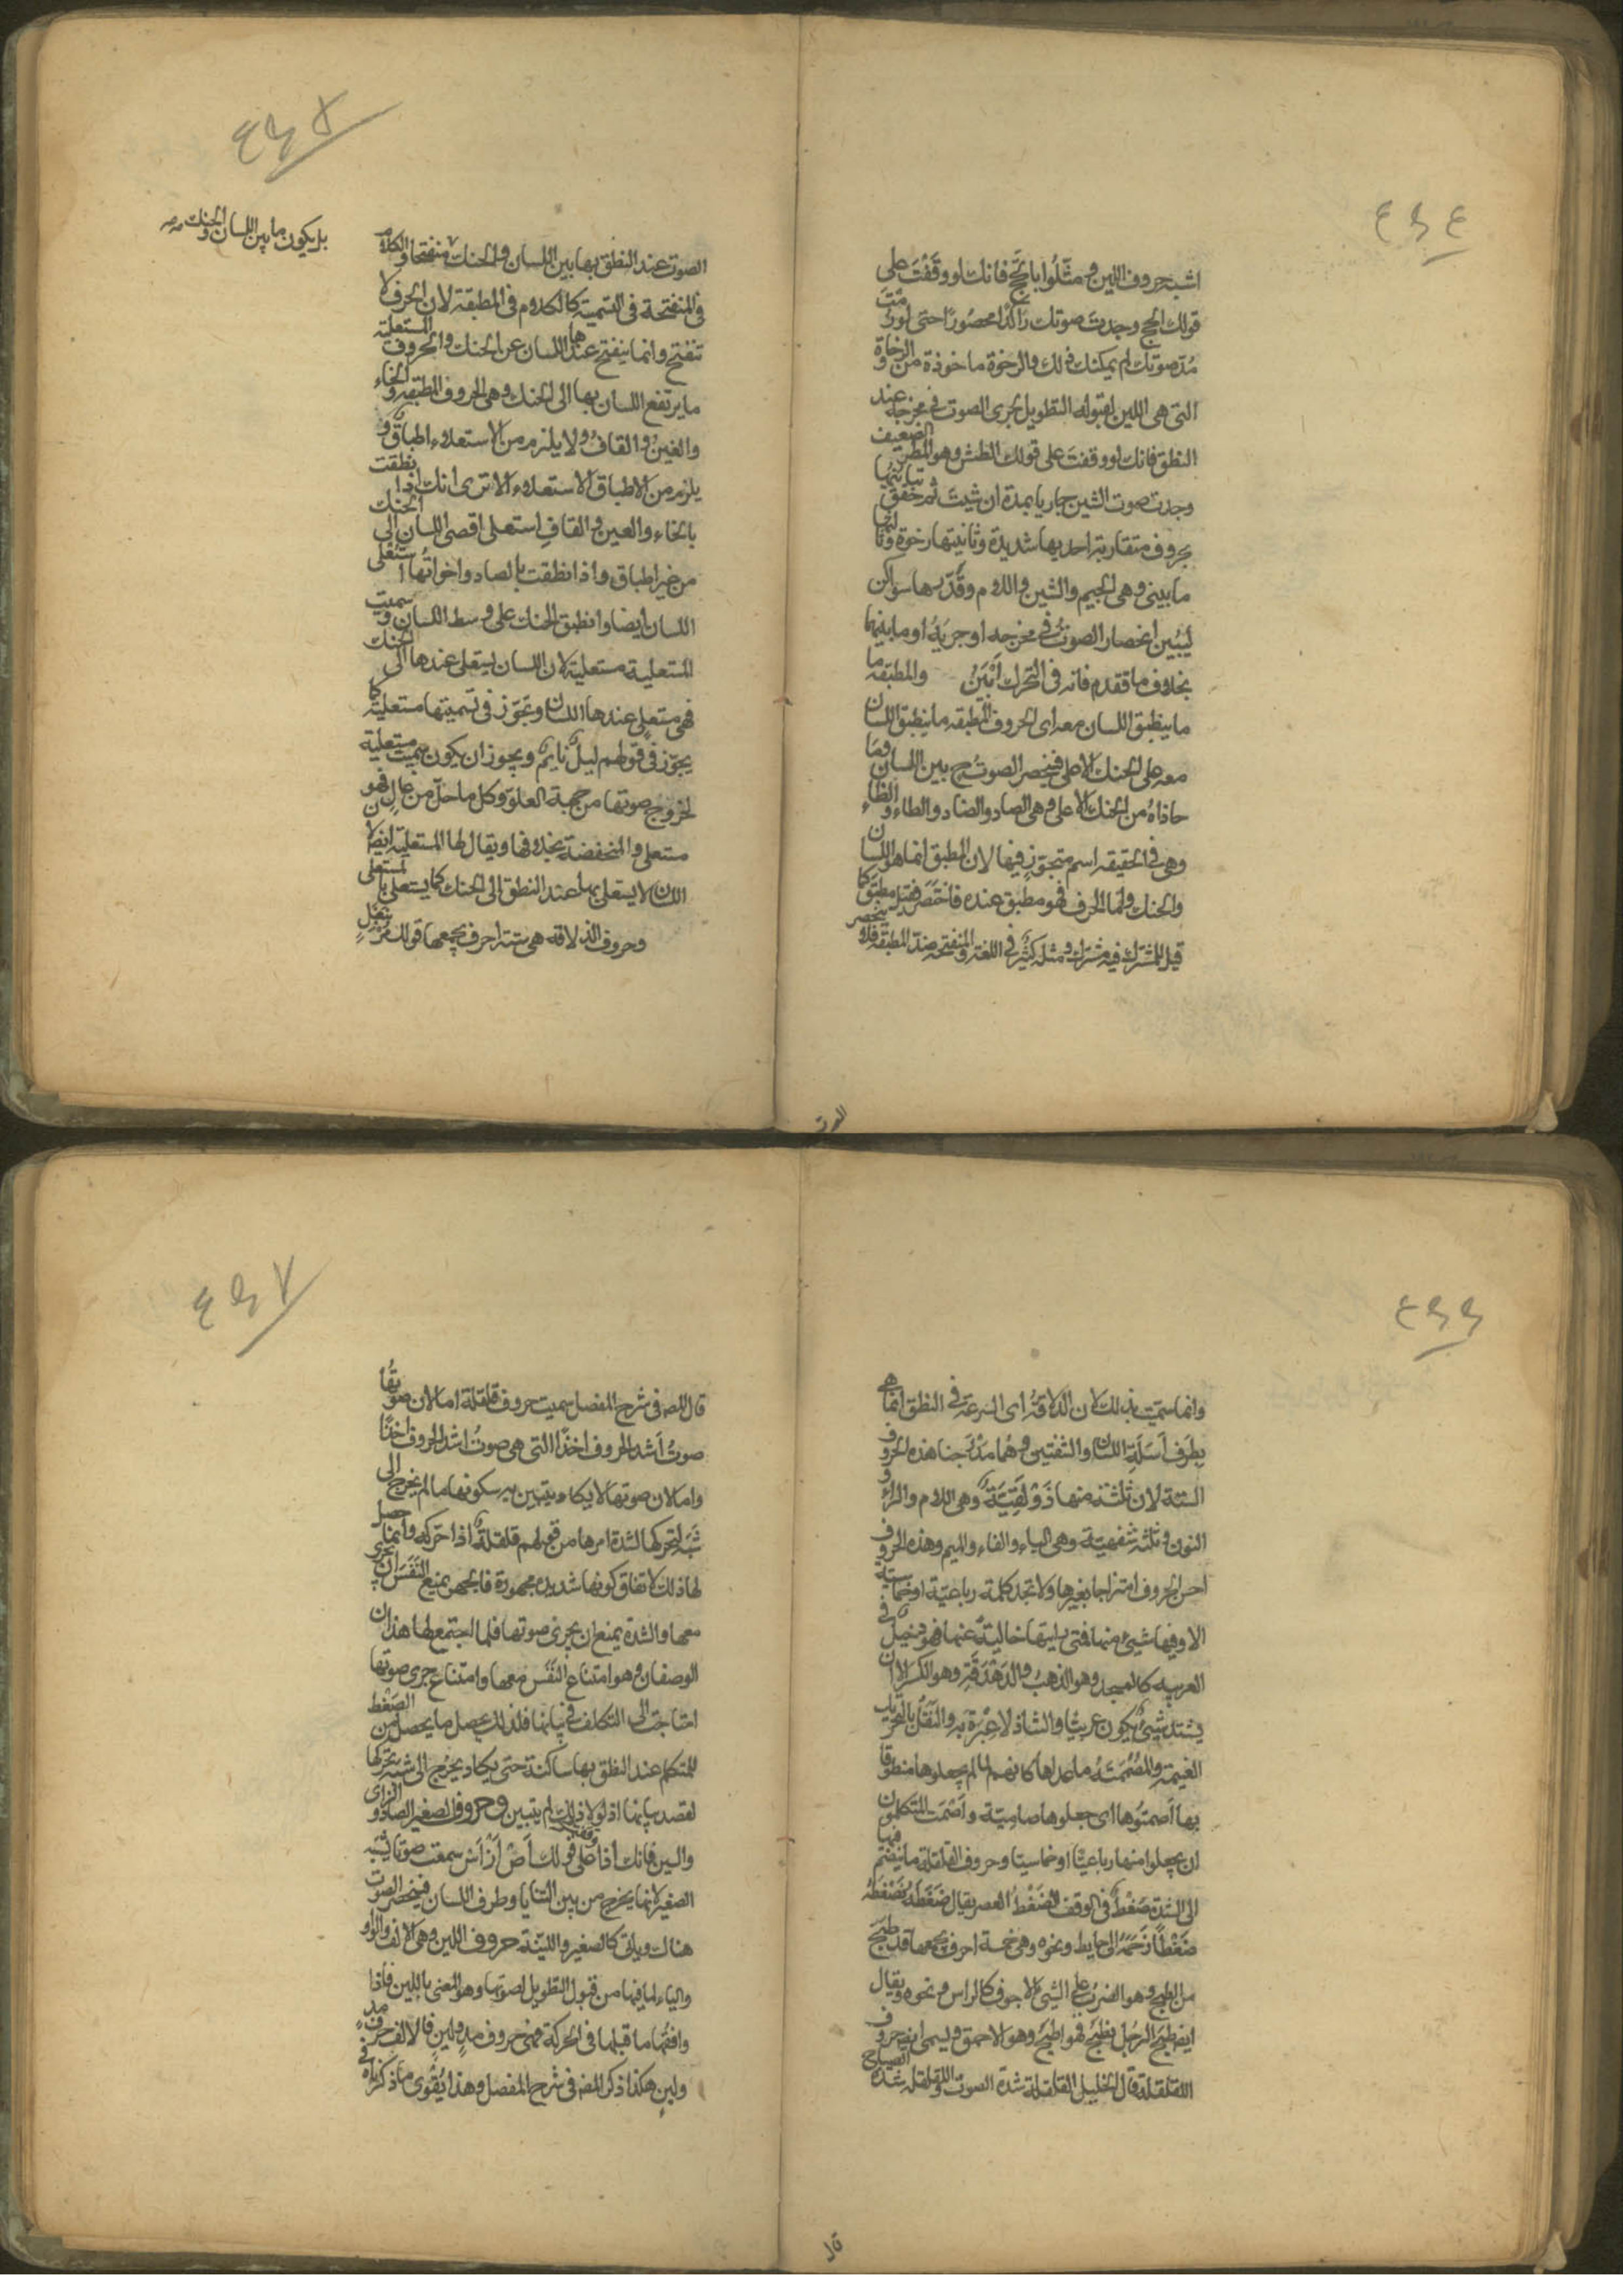 ٤٦٤
اشبه حروف اللين ومثّلوا بالحج فانك لو وقفت على
قولك الحج وجدت صوتك راكدا محصورا حتى لو رمت
مدّ صوتك لم يمكنك ذلك والرخوة ماخوذة من الرخاوة و
التى هى اللين لقبوله التطويل لجرى الصوت فى مخرجه عند
النطق فانك لو وقفت على قولك الطش وهو المطر الضعيف
وجدت صوت الشين جاريا بمدة ان شئت ثم حقق تباينها
بحروف متقاربة احديها شديدة وثانيتها رخوة وثالثها
ما بينى وهى الجيم والشين واللام وقدّرها سواكن
ليبين انحصار الصوت فى مخرجه او جريه او ما بينهما
بخلاف ما تقدم فانه فى التحرك ابين والمطبقه ما
ما ينطبق اللسان معه اى الحروف المطبقه ما ينطبق اللسان
معه على الحنك الاعلى فينحصر الصوت ح بين اللسان وما
حاذاه من الحنك الاعلى وهى الصاد والضاد والطاء والظاء
وهى فى الحقيقه اسم متجوز فيها لان المطبق انما هو اللسان
والحنك واما الحرف فهو مطبق عنده فاختصر فقيل مطبق كما
قيل للمشترك فيه مشترك ومثله كثير فى اللغة والمنفتحه ضد المطبقه فلا ينحصر
الصوت
٤٦٥
بل يكون ما بين اللسان والحنك صح
الصوت عند النطق بها بين اللسان والحنك منفتحا والكلام
فى المنفتحة فى التسمية كالكلام فى المطبقة لان الحرف لا
تنفتح وانما ينفتح عندها اللسان عن الحنك والحروف المستعلية
ما يرتفع اللسان بها الى الحنك وهى الحروف المطبقه والخاء
والغين والقاف ولا يلزم من الاستعلاء اطباق و
يلزم من الاطباق الاستعلاء الا ترى انك اذا نطقت
بالخاء والغين والقاف استعلى اقصى اللسان الى الحنك
من غير اطباق واذا نطقت بالصاد واخواتها استعلى
اللسان ايضا وانطبق الحنك على وسط اللسان وسميت
المستعلية مستعلية لان اللسان يستعلى عندها الى الحنك
فهى مستعلى عندها اللسان وتجوّز فى تسميتها مستعلية كما
يجوّز فى قولهم ليل نايم ويجوز ان يكون سميت مستعلية
لخروج صوتها من جهة العلو وكل ما حل من عال فهو
مستعلى والمنخفضة بخلافها ويقال لها المستفلة ايضا لان
اللسان لا يستعلى بها عند النطق الى الحنك كما يستعلى بالمستعلى
وحروف الذلاقه هى ستة احرف يجمعها قولك مر بنفل
٤٦٦
وانما سميت بذلك لان الذلاقة اى السرعة فى النطق انما هى
بطرف اسلة اللسان والشفتين وهما مدرجتا هذه الحروف
الستة لان ثلثة منها ذولقية وهى اللام والراء و
النون وثلثة شفهية وهى الباء والفاء والميم وهذه الحروف
احسن الحروف امتزاجا بغيرها ولا تجد كلمة رباعية او خماسية
الا وفيها شىء منها فمتى رايتها خالية عنها فهو دخيل فى
العربيه كالعسجد وهو الذهب والدهدقة وهو الكسر الا ان
يشتد شىء يكون عربيا والشاذ لا عبرة به
والمصمتة ما عداها كانهم لما لم يجعلوها منطوقا
بها اصمتوها اى جعلوها صامتة واصمت المتكلمون
ان يجعلوا منها رباعيا او خماسيا وحروف القلقلة ما ينضم فيها
الى الشدة ضغط فى الوقف الضغط العصر يقال ضغطه يضغطه
ضغطا زحمه الى حايط ونحوه وهى خمسة احرف يجمعها قد طبج
من الطبج وهو الضرب على الشىء الاجوف كالراس ونحوه ويقال
ايضا طبج الرجل يطبج فهو اطبج وهو الاحمق ويسمى ايضا حروف
اللقلقلة قال الخليل القلقلة شدة الصوت واللقلقله شدة الصياح
قال
٤٦٧
قال المص فى شرح المفصل سميت حروف قلقلة اما لان صوتها
صوت اشد الحروف اخذا التى هى صوت اشد الحروف اخذا
واما لان صوتها لا يكاد يتبين به سكونها ما لم يخرج الى
شبه تحركها لشدة امرها من قولهم قلقلة اذا حركه وانما حصل
لها ذلك لاتفاق كونها شديدة مجهورة فالجهر يمنع النفس ان يجرى
معها والشدة يمنع ان يجرى صوتها فلما اجتمع لها هذان
الوصفان وهو امتناع النفس معها وامتناع جرى صوتها
احتاجت الى التكلف فى بيانها فلذلك يحصل ما يحصل من الضغط
للمتكلم عند النطق بها ساكنة حتى يكاد يخرج الى شبه تحركها
لقصد بيانها اذ لولا ذلك لم يتبين وحروف الصفير الصاد والزاى
والسين فانك اذا وقفت على قولك اص از اس سمعت صوتا يشبه
الصفير لانها يخرج من بين الثنايا وطرف اللسان فينحصر الصوت
هناك وياتى كالصفير واللينة حروف اللين وهى الالف والواو
والياء لما فيها من قبول التطويل لصوتها وهو المعنى باللين فاذا
وافقها ما قبلها فى الحركة فهى حروف مد ولين فالالف حرف مد
ولين هكذا ذكر المص فى شرح المفصل وهذا يقوى ما ذكرناه فى